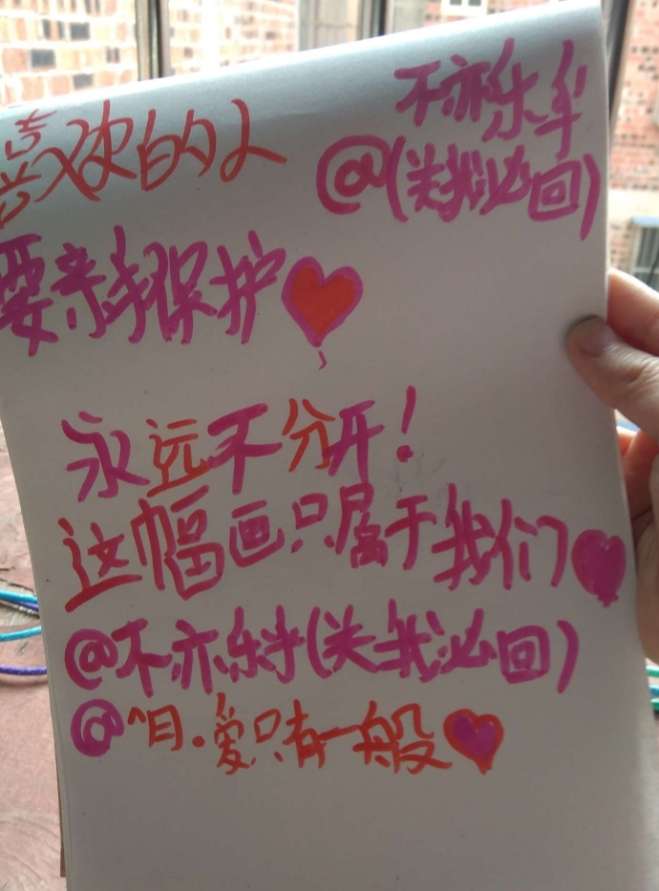 不亦乐乎
@(关我必回)
喜欢的人
要亲手保护
永远不分开!
这幅画只属于我们
@不亦乐乎(关我必回)
@^日.爱只有一般